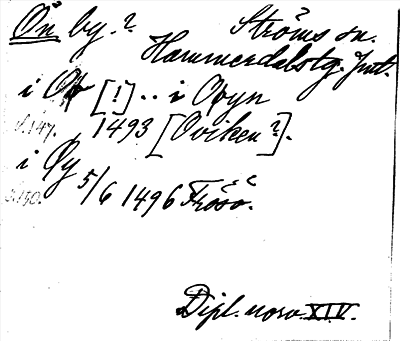 Ön by.? Ströms sn.
Hammerdalstg. Jmt.
i Oy [!] .. i Ovyn
s. 147. 1493 [Oviken?].
i Øy 5/6 1496 Frösö.
s. 150.
Dipl. norv. XIV.